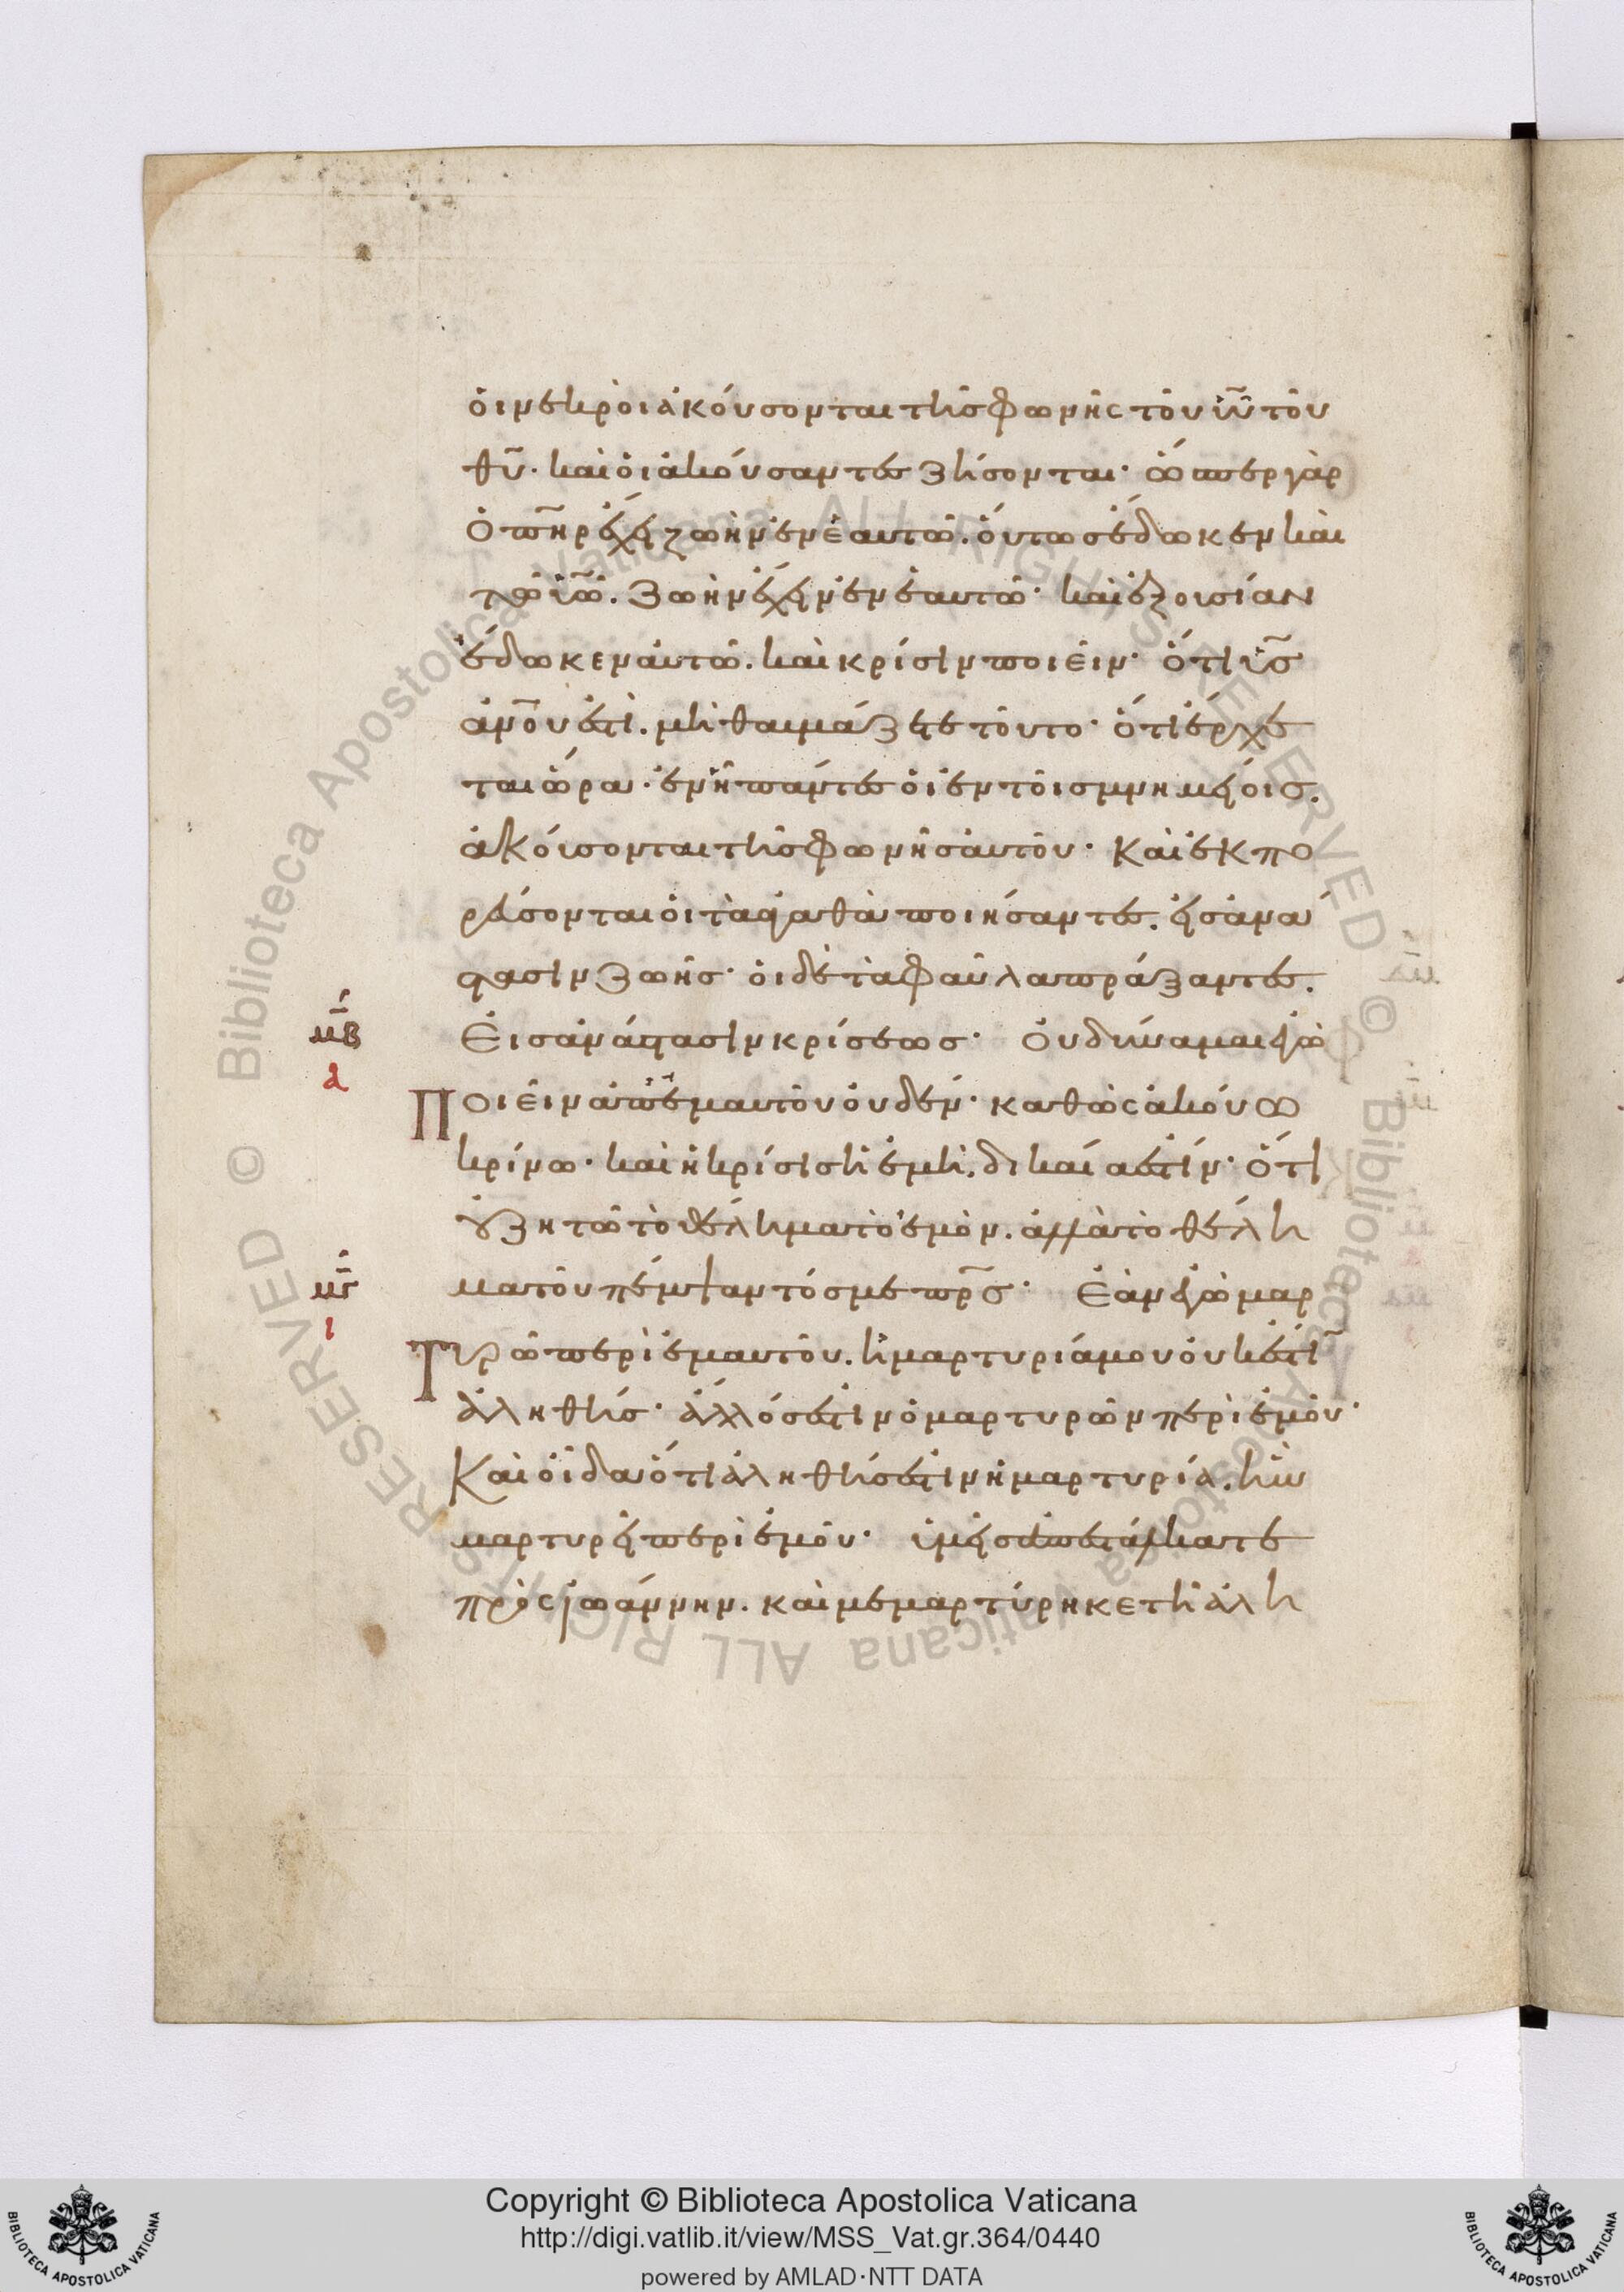 ὁι νεκρὸι ἀκόυσονται τῆσ φωνῆς τοῦ ὑῦ τοῦ
θῦ· καὶ ὁι ἀκόυσαντες ζήσονται· ὥσπερ γὰρ
ὁ πῆρ ἔχει ζωὴν ἐν ἑαυτῶ. ὅυτωσ ἔδωκεν καὶ
τῶ ὑῶ. ζωὴν ἔχειν ἐν ἑαυτῶ· καὶ ἐξουσίαν
ἔδωκεν ἀυτῶ. καὶ κρίσιν ποιεῖν· ὅτι ὑσ
ἀνου ἐστὶ. μὴ θαυμάζετε τοῦτο· ὅτι ἔρχε
ται ὥρα· ἐν ἧ πάντες ὁι ἐν τοῖσ μνημείοισ.
ἀκόυσονται τῆσ φωνῆσ ἀυτοῦ· καὶ ἐκπο
ρεύσονται ὁι τὰ ἀγαθὰ ποιήσαντες. εἰσ ἀνά
στασιν ζωῆσ· ὁι δὲ τὰ φαῦλα πράξαντες.
Εἰσ ἀνάστασιν κρίσεωσ· Ὀυ δύναμαι ἐγὼ
Ποιεῖν ἀπ' ἐμαυτοῦ ὀυδέν· καθὼς ἀκόυω
κρίνω· καὶ ἡ κρίσισ ἡ ἐμὴ. δικαία ἐστίν· ὅτι
οὐ ζητῶ τὸ θέλημα τὸ ἐμὸν. ἀλλὰ τὸ θέλη
μα τοῦ πέμψαντόσ με πρσ· Ἐὰν ἐγὼ μαρ
Τυρῶ περὶ ἐμαυτοῦ. ἡ μαρτυρία μου ὀυκ ἔστι
ἀληθήσ· ἄλλόσ ἐστιν ὁ μαρτυρῶν περὶ ἐμοῦ·
Καὶ ὀῖδα ὅτι ἀληθήσ ἐστιν ἡ μαρτυρία. ἣν
μαρτυρεῖ περὶ ἐμοῦ· ὑμεῖσ ἀπεστάλκατε
πρὸς ἰωάννην. καὶ μεμαρτύρηκε τῆ ἀλη
μβ
α
μγ
ι
Copyright © Biblioteca Apostolica Vaticana
http://digi.vatlib.it/view/MSS_Vat.gr.364/0440
powered by AMLAD·NTT DATA
BIBLIOTECA APOSTOLICA VATICANA
BIBLIOTECA APOSTOLICA VATICANA
© Biblioteca Apostolica Vaticana ALL RIGHTS RESERVED © Biblioteca Apostolica Vaticana ALL RIGHTS RESERVED